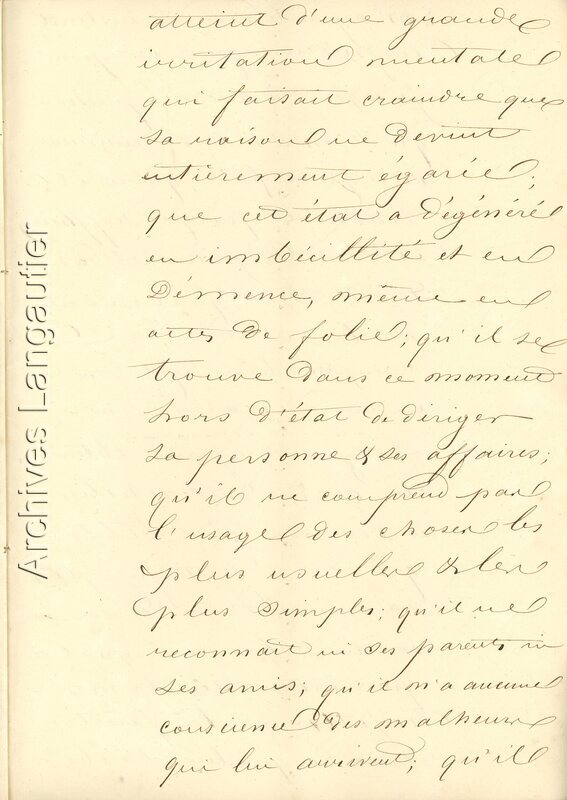 atteint d'une grande
irritation mentale
qui faisait craindre que
sa raison ne devint
entièrement égarée;
que cet état a dégénéré
en imbécillité et en
Démence, même en
actes de folie; qu'il se
trouve dans ce moment
hors d'état de diriger
sa personne & ses affaires;
qu'il ne comprend pas
l'usage des choses les
plus usuelles & les
plus simples; qu'il ne
reconnait ni ses parents ni
ses amis; qu'il n'a aucune
conscience des malheurs
qui lui arrivent; qu'il
Archives Langautier